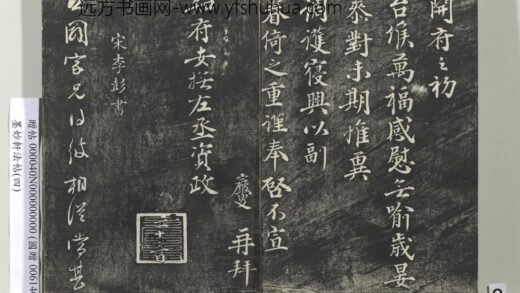 远方书画网-www.yfshuhua.com
開府之初
台候萬福感慰無喻歲晏
恭對未期惟冀
調護寢興以副
眷倚之重謹奉啓不宣
再拜
府安撫左丞資政
宋李彭書
兄 相從常甚
贈帖 000040N000000000 (國贈 00614
墨妙軒法帖(四)